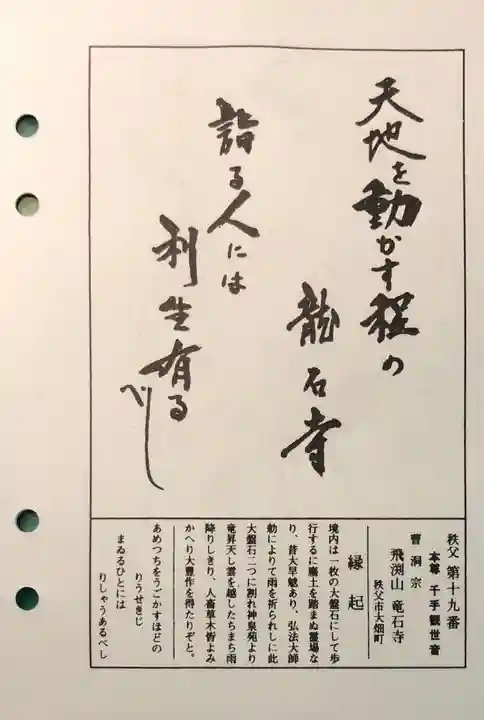 天地を動かす程の
龍石寺
詣る人には
利生有る
べし
秩父 第十九番
本尊 千手観世音
曹洞宗
飛渕山 竜石寺
秩父市大畑町
縁起
境内は一枚の大盤石にして歩
行するに塵土を踏まぬ霊場な
り、昔大旱魃あり、弘法大師
勅によりて雨を祈られしに此
大盤石二つに割れ神泉苑より
竜昇天し雲を起したちまち雨
降りしきり、人畜草木皆よみ
かへり大豊作を得たりぞと。
あめつちをうごかすほどの
りうせきじ
まゐるひとには
りしゃうあるべし